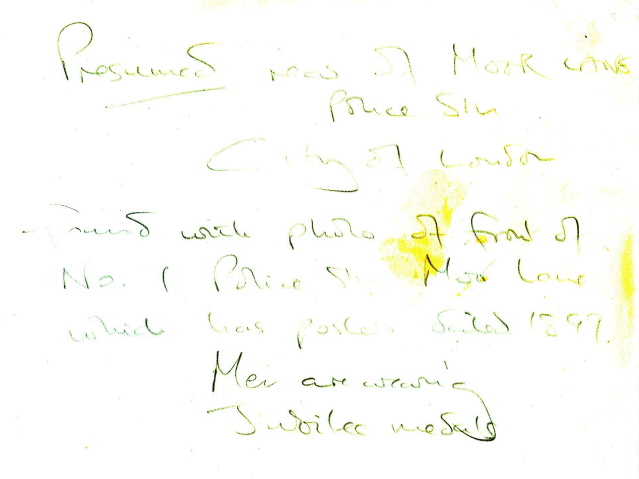 Presumed rear of MOOR LANE
Police Stn
City of London
Found with photo of front of
No. 1 Police Stn. Moor Lane
which has poster dated 1897.
Men are wearing
Jubilee medals